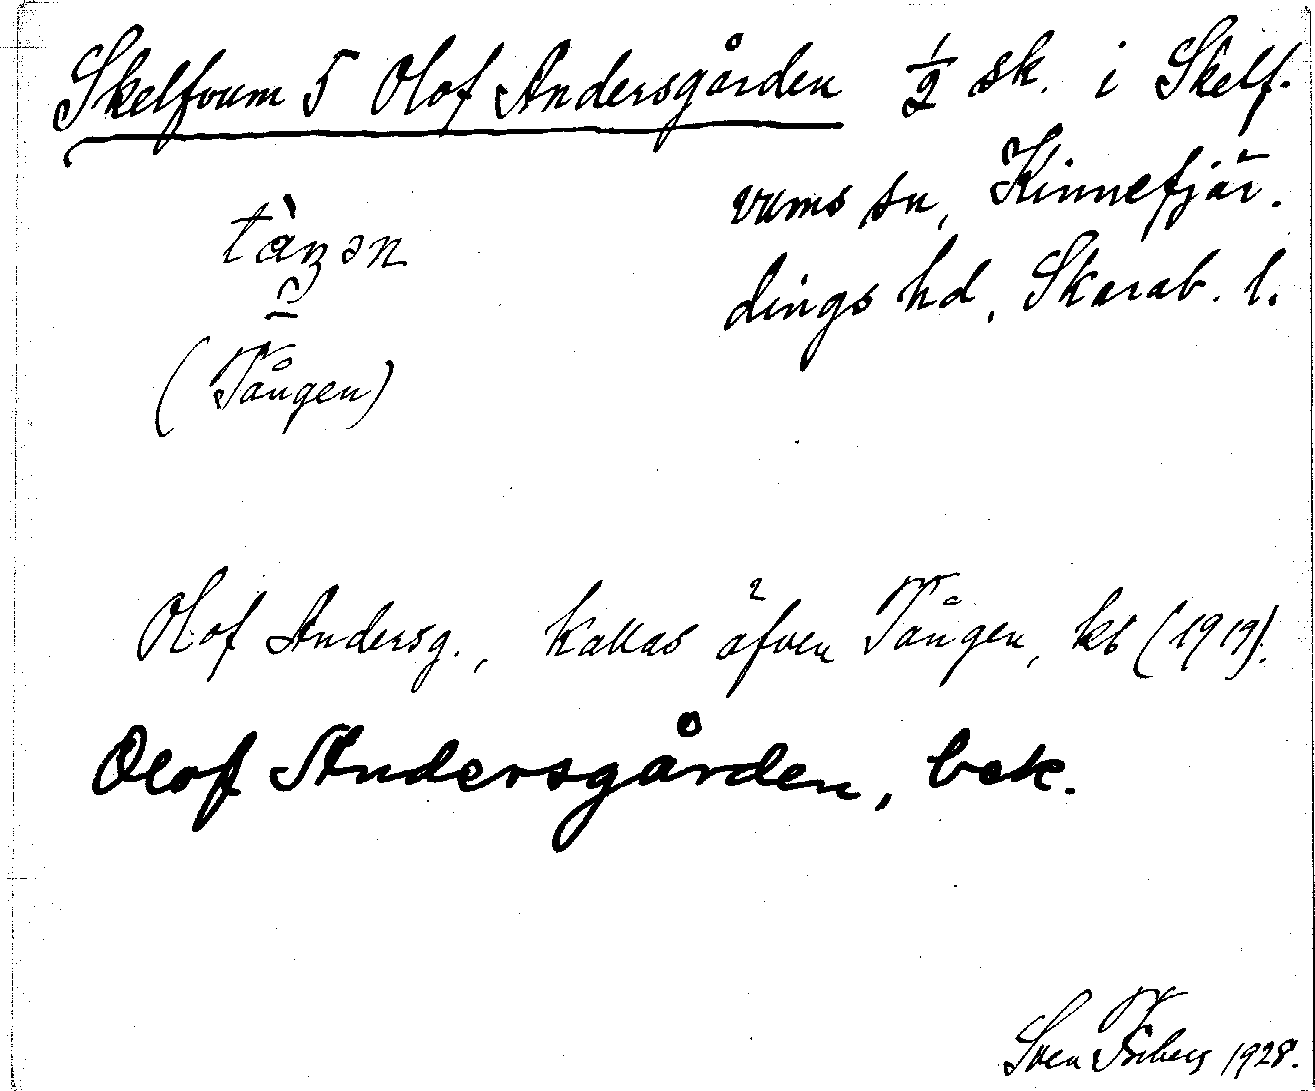 Skelfvum 5 Olof Andersgården 1/2 sk. i Skelf-
vums sn, Kinnefjär-
dings hd, Skarab. l.
(Tången)
Olof Andersg., kallas äfven Tången, kb (1919).
Olof Andersgården, bek.
Sven Friberg 1928.